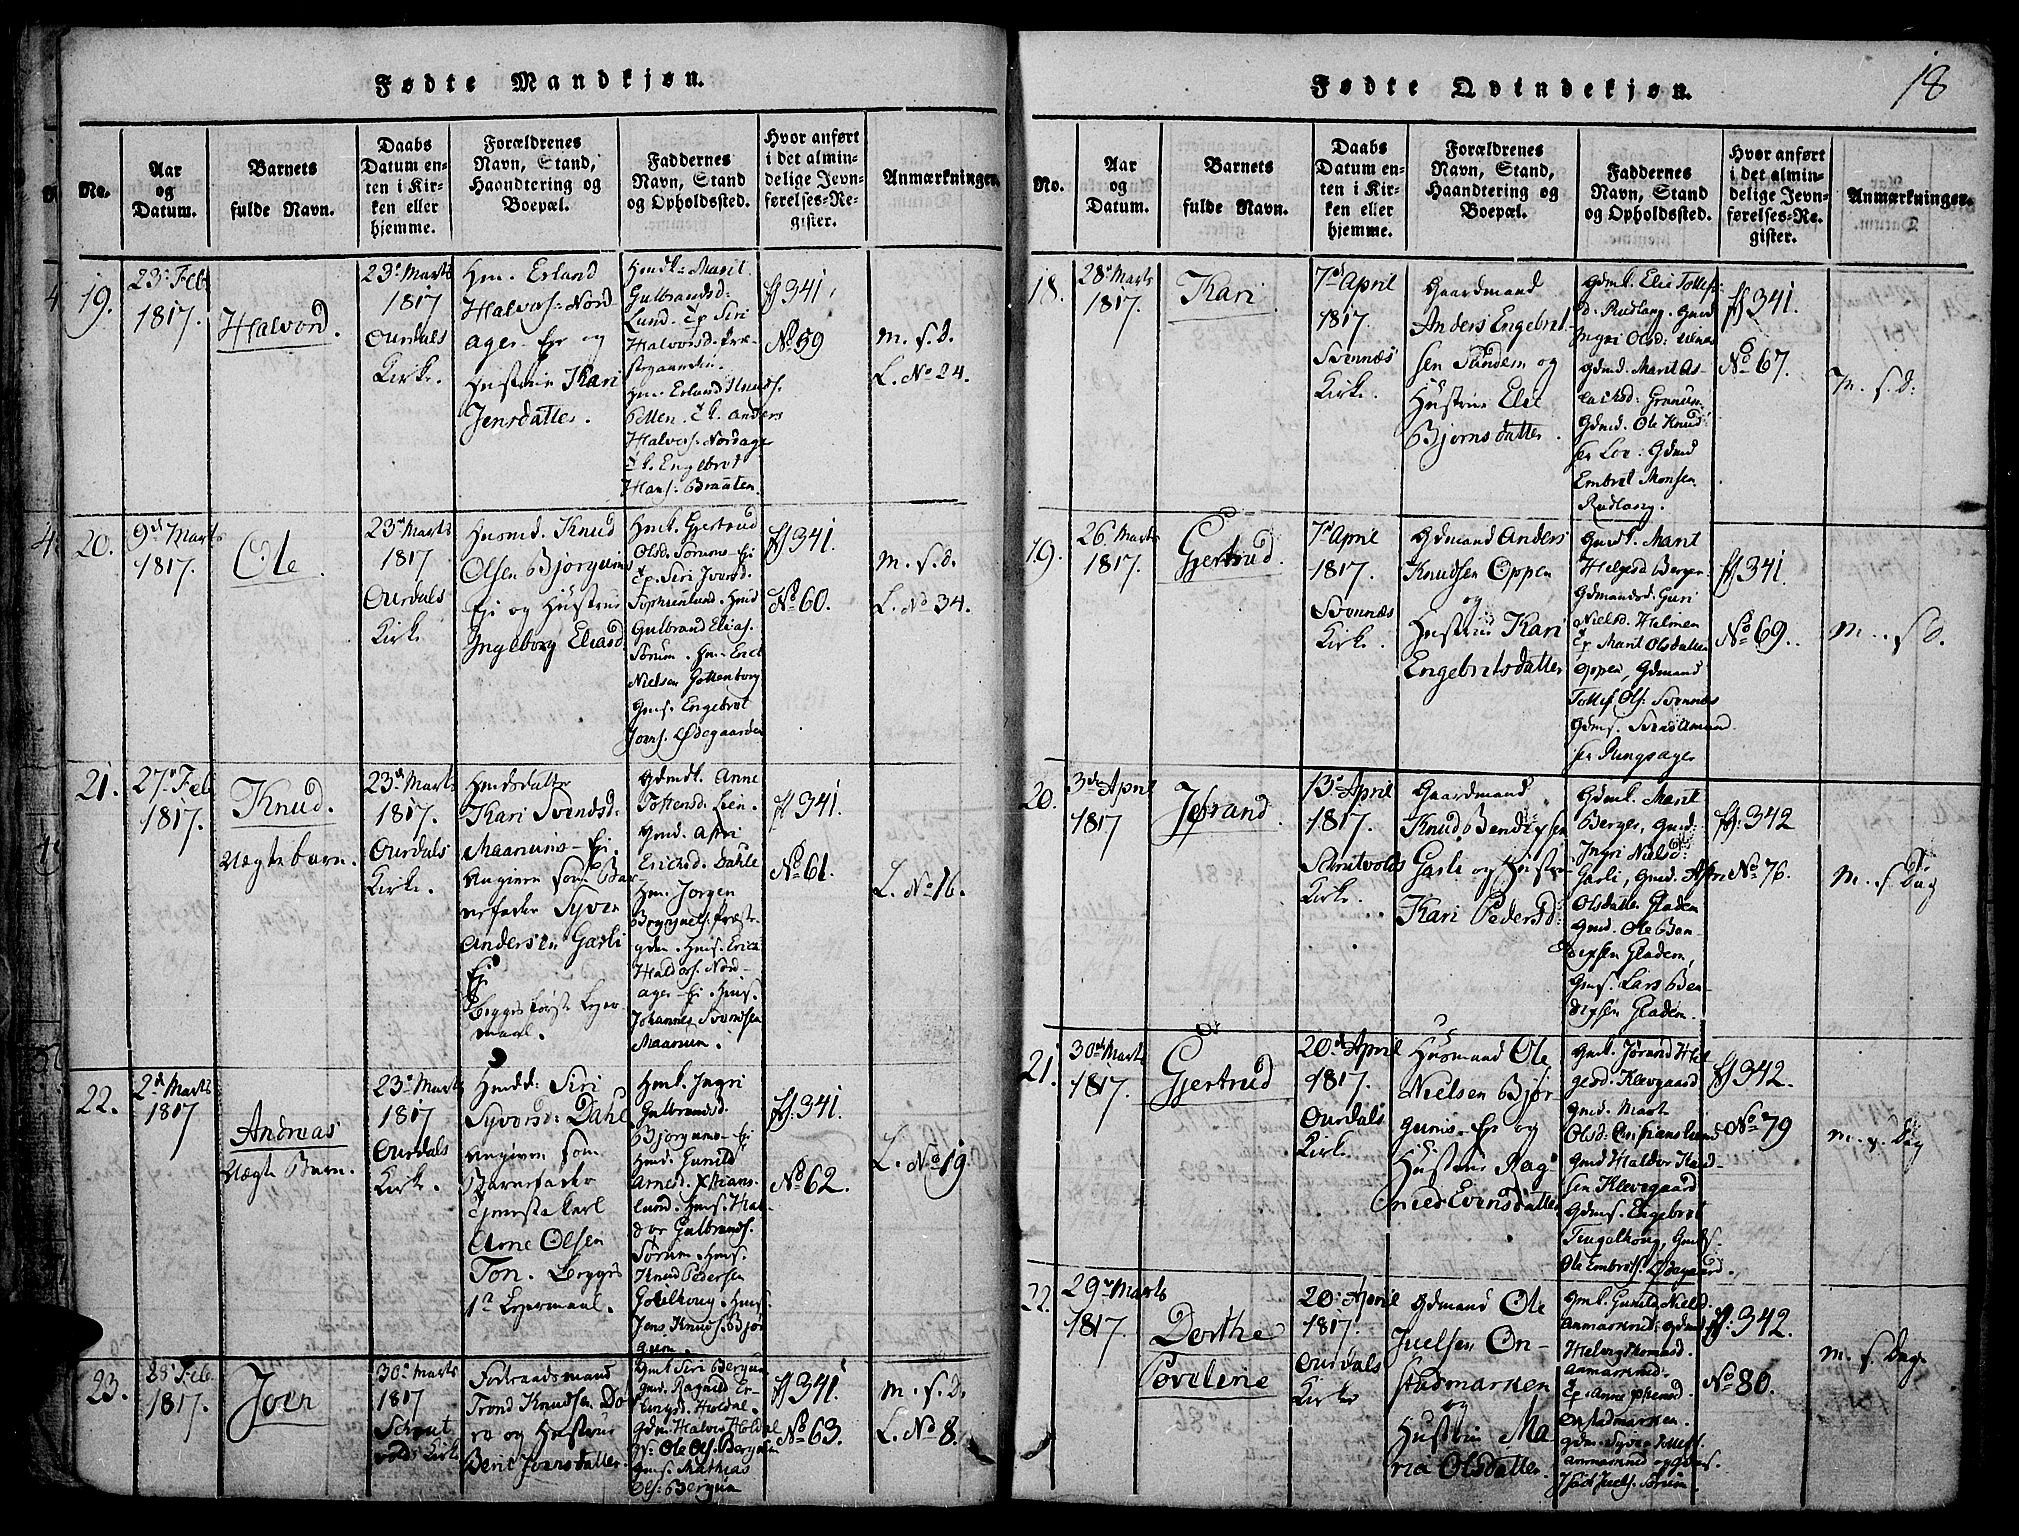 18
Fødte Mandkjøn.
No.
Aar
og
Datum.
Barnets
fulde Navn.
Daabs
Datum en-
ten i Kir-
ken eller
hjemme.
Forældrenes
Navn, Stand,
Haandtering og
Boepæl.
Faddernes
Navn, Stand
og Opholdssted.
Hvor anført
i det almin-
delige Jevn-
førelses-Re-
gister.
Anmærkninger.
19.
23d Feb
1817.
Halvord.
23d Marts
1817
Ourdals
Kirke.
Hm. Erland
Halvors: Nord
ager-Ejr og
Hustrue Kari
Jensdatter.
Hmdk: Marit
Gulbrandsd:
Lund. Siri
Halvorsd. Præ-
stegaarden.
Hm. Erland Knuds.
Anders
Halvors: Nordager
Engebret
Hans: Braaten.
341.
No 59
m. s. d.
L. No 24.
20.
9d Marts
1817.
Ole
23d Marts
1817
Ourdals
Kirke
Husmd. Knud
Olsen Bjørgums
Eje og Hustrue
Ingeborg Eliasd
Hmk. Gjertrud
Olsd. Sørums-Ej
Siri Iversd.
Gulbrand Elias.
Sørum. Hm. Erich
Nielsen Gottenborg
Gms. Engebret
Joens. Ødegaarden
341.
No 60.
m. s. d.
L. No 34.
21.
27d Feb
1817.
Knud.
Uægte barn.
23d Marts
1817.
Ourdals
Kirke.
Kari Svendsd:
Maarums-Ej.
angiven som Bar-
nefader Syver
Andersen Garli
Ej
Begges første Lejer
maal.
Gdmdk. Anne
Tostensd. Lien
Gmd. Astri
Erichsd. Dahle
Hm. Jørgen
Præste-
gden. Hms. Erica
Haldors. Nord-
ager-Ej. Hms.
Johannes Svendsen
Maarum.
341.
No 61.
L. No 16.
22.
2d Marts
1817
Andreas
Uægte Barn.
23d Marts
1817
Ourdals
Kirke.
Hmdd: Siri
Syversd: Dahl
angiven som
Barnefader
Tjenestekarl
Arne Olsen
Ton. Begges
1te Lejermaal.
Hmk. Ingri
Gulbrandsd.
Bjørgums-Ej
Hmd. Gunild
Arnesd. Xstians-
lund. Hms. Hal
dor Gulbrands.
Sørum. Hms.
Knud Pedersen
Hms.
Jens Knuds. Bjør
gum.
341.
No 62.
L. No 19.
23.
28d Feb.
1817.
Joen
30d Marts
1817
Schrut
volds Kirke
Trond Knudsen Do
ro og Hustrue
Berit Joensdatter.
Gmk Siri Bergum
Gmd. Ragnild Er-
lingsd. Holdal.
Gdm. Halvor Holdal
Ole Ols. Bergum
Gms. Mathias
Ols. Bergum
341.
No 63.
m. s. d.
L. No 8.
Fødte Qvindekjøn.
No.
Aar
og
Datum.
Barnets
fulde Navn.
Daabs
Datum en-
ten i Kir-
ken eller
hjemme.
Forældrenes
Navn, Stand,
Haandtering og
Boepæl.
Faddernes
Navn, Stand
og Opholdssted.
Hvor anført
i det almin-
delige Jevn-
førelses-Re-
gister.
Anmærkninger.
18.
28d Marts
1817.
Kari
7d April
1817.
Svennæs
Kirke.
Gaardmand
Anders Engebret-
sen Sundem og
Hustrue Elie
Bjørnsdatter.
Gdmk. Elie Tollefs
d. Rudlang. Gmd
Ingri Olsd:
Gdmd. Marit As
lachsd: Granum
Gdmd. Ole Knud
sen Loe: Gdmd
Embret Monsen
Rudlang.
341.
No 67.
m. s. d.
19.
26 Marts
1817.
Gjertrud.
7d April
1817.
Svennæs
Kirke.
Gdmand Anders
Knudsen Oppen
og
Hustrue Kari
Engebretsdatter
Gmdk. Marit
Helgesd Berger
Gdmandsd: Guri
Nielsd. Helmen
Marit Olsdatter
Oppen, Gdmand
Tollef Ols. Svennæs
Ringsager
341.
No 69.
m. s d.
20.
3d April
1817
Jøbrand.
13d April
1817.
Schrutvolds
Kirke.
Gaardmand
Knud Bendixsen
Garli og Hustrue
Kari Pedersd:
Gdmk. Marit
Berger, Gmd:
Ingri Nielsd:
Garli, Gmd. Astri
Olsdatter Gladem
Gmd. Ole Ben
dixsen Gladem,
Gms. Lars Ben-
dixsen Gladem.
342
No 76.
m. s Dag
21.
30d Marts
1817.
Gjertrud
20d April
1817.
Ourdals
Kirke
Husmand Ole
Nielsen Bjør
gums-Ejr og
Hustrue Rag
nild Evensdatter
Gmk. Jørand Hel
gesd. Klevgaard
Gmd. Marit
Olsd: Christianslund
Gmd Haldor Knud-
sen Klevgaard
Gdms. Engebret
Tingelhoug, Gmds.
Ole Embrets. Ødegaard.
342.
No 79
m. s. Dag
22.
29d Marts
1817.
Dorthe
Poveline
20d April
1817.
Ourdals
Kirke
Gdmand Ole
Juelsen On-
stadmarken
og
Hustrue Ma
ria Olsdatter.
Gmk. Gunild Nielsd.
Helvig Thomasd.
Onstadmarken.
Gdm. Syver Tollefs.
Juels. Sørum.
342.
No 80.
m. s. Dag.